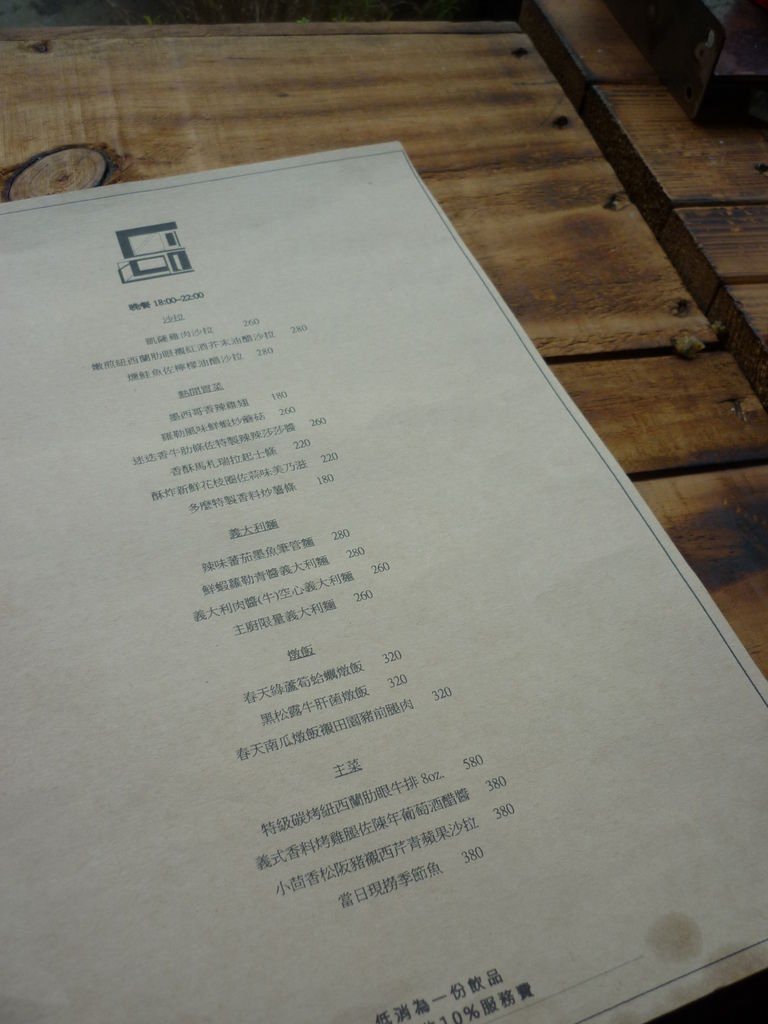 晚餐 18:00~22:00
沙拉
凱薩雞肉沙拉 260
嫩煎紐西蘭肋眼襯紅酒芥末油醋沙拉 280
燻鮭魚佐檸檬油醋沙拉 280
熱開胃菜
墨西哥香辣雞翅 180
羅勒風味鮮蝦炒蘑菇 260
迷迭香牛肋條佐特製辣辣莎莎醬 260
香酥馬札瑞拉起士條 220
酥炸新鮮花枝圈佐蒜味美乃滋 220
多麼特製香料炒薯條 180
義大利麵
辣味蕃茄墨魚筆管麵 280
鮮蝦蘿勒青醬義大利麵 280
義大利肉醬(牛)空心義大利麵 260
主廚限量義大利麵 260
燉飯
春天綠蘆筍蛤蠣燉飯 320
黑松露牛肝菌燉飯 320
春天南瓜燉飯襯田園豬前腿肉 320
主菜
特級碳烤紐西蘭肋眼牛排 8oz. 580
義式香料烤雞腿佐陳年葡萄酒醋醬 380
小茴香松阪豬襯西芹青蘋果沙拉 380
當日現撈季節魚 380
低消為一份飲品
10%服務費